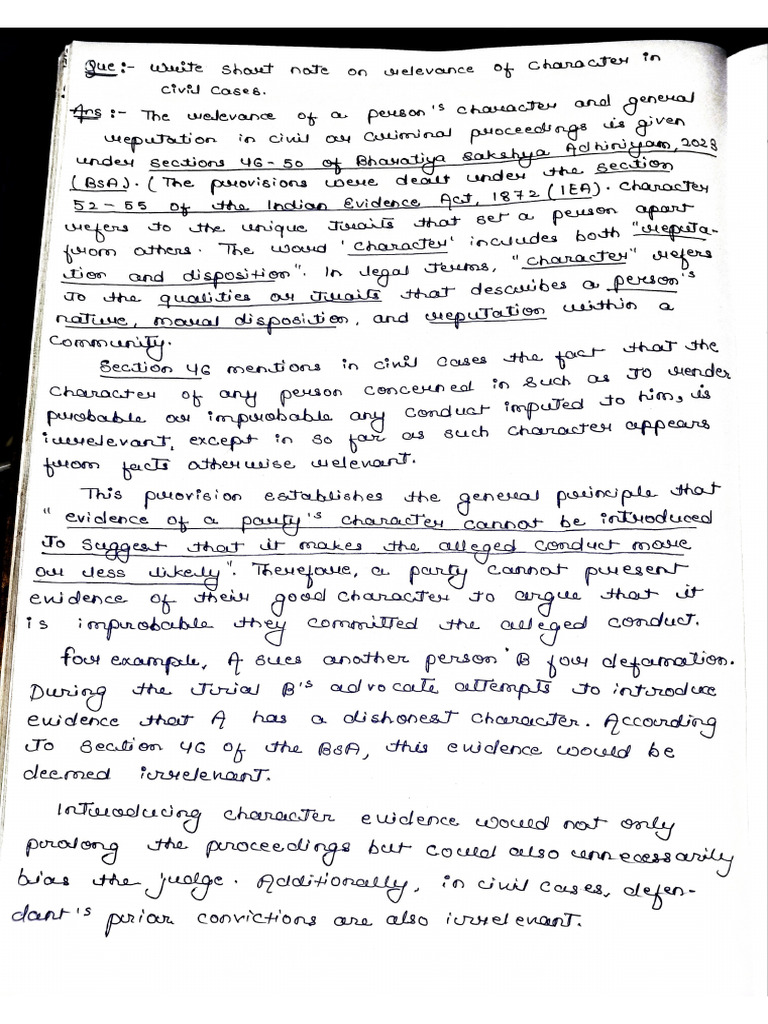 Que :- Write short note on relevance of character in
civil cases.
Ans :- The relevance of a person's character and general
reputation in civil or criminal proceedings is given
under sections 46-50 of Bharatiya Sakshya Adhiniyam, 2023
(BSA). (The provisions were dealt under the section
52-55 of the Indian Evidence Act, 1872 (IEA). Character
refers to the unique traits that set a person apart
from others. The word 'character' includes both "reputa-
tion and disposition". In legal terms, "character" refers
to the qualities or traits that describes a person's
nature, moral disposition, and reputation within a
community.
Section 46 mentions in civil cases the fact that the
character of any person concerned in such as to render
probable or improbable any conduct imputed to him, is
irrelevant, except in so far as such character appears
from facts otherwise relevant.
This provision establishes the general principle that
"evidence of a party's character cannot be introduced
to suggest that it makes the alleged conduct more
or less likely". Therefore, a party cannot present
evidence of their good character to argue that it
is improbable they committed the alleged conduct.
for example, A sues another person B for defamation.
During the trial B's advocate attempts to introduce
evidence that A has a dishonest character. According
to Section 46 of the BSA, this evidence would be
deemed irrelevant.
Introducing character evidence would not only
prolong the proceedings but could also unnecessarily
bias the judge. Additionally, in civil cases, defen-
dant's prior convictions are also irrelevant.